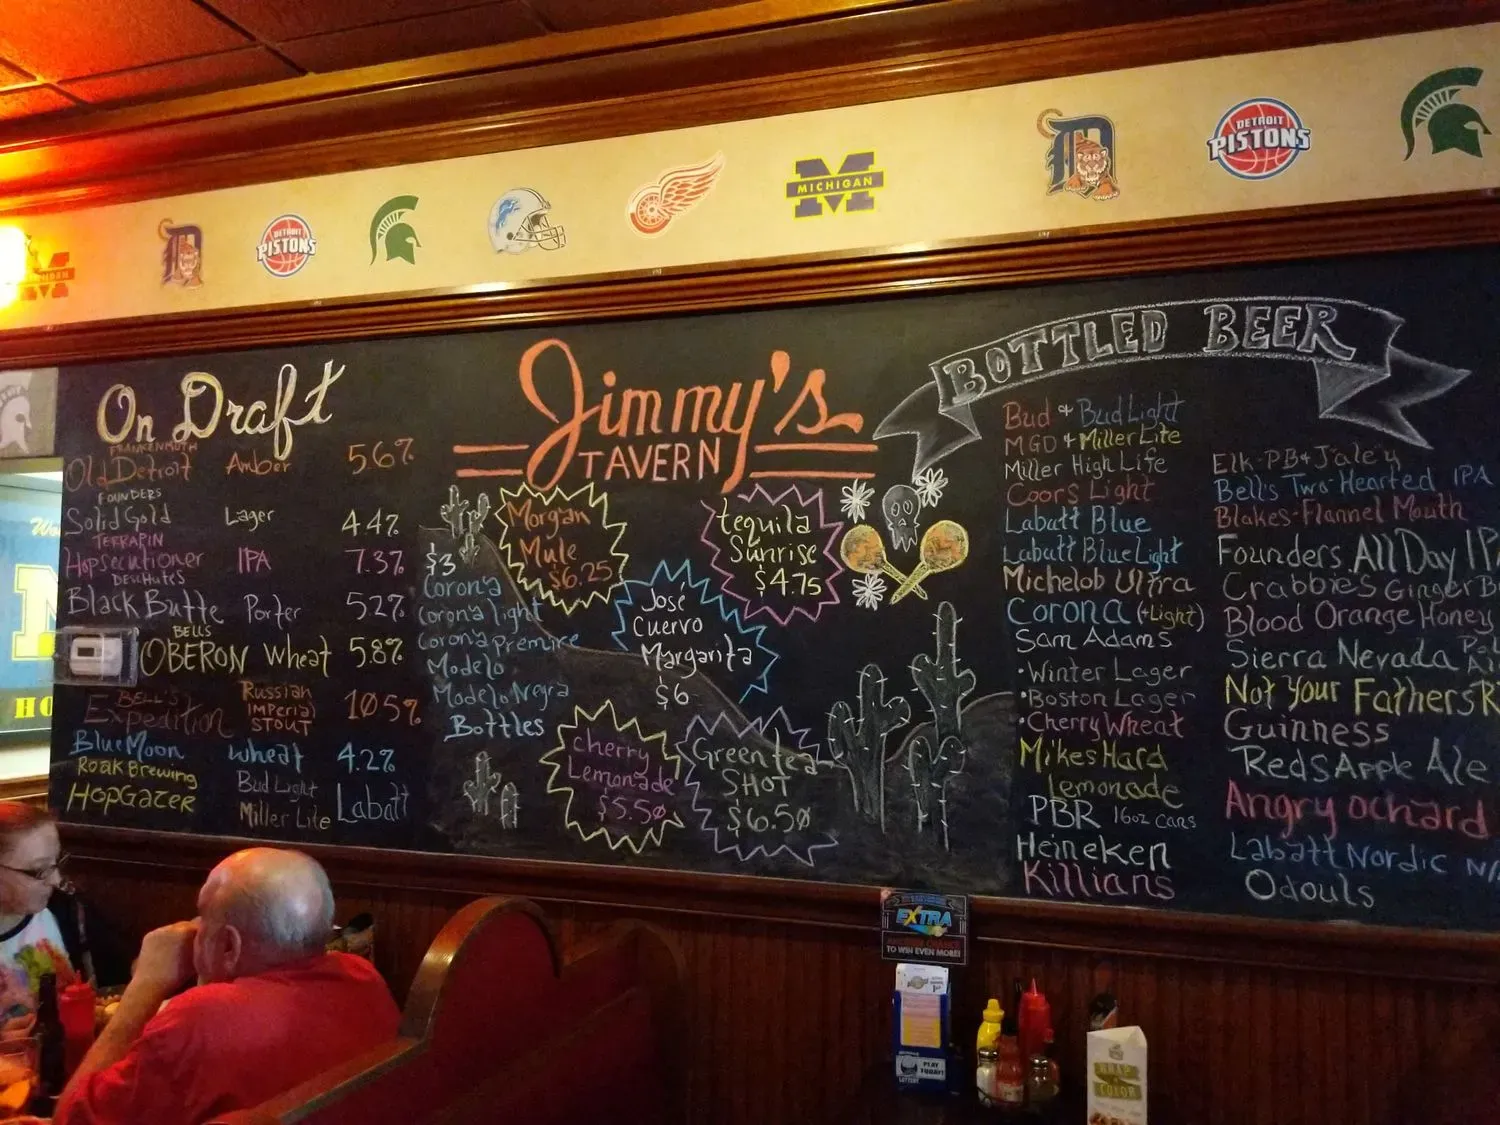 MICHIGAN
DETROIT
PISTONS
DETROIT
PISTONS
On Draft
FRANKENMUTH
Old Detroit Amber 5.6%
FOUNDERS
Solid Gold Lager 4.4%
TERRAPIN
Hopsecutioner IPA 7.3%
DESCHUTES
Black Butte Porter 5.2%
BELLS
OBERON Wheat 5.8%
BELL'S
Expedition Russian Imperial STOUT 10.5%
Blue Moon wheat 4.2%
Roak Brewing
HopGazer
Bud Light
Miller Lite
Labatt
Jimmy's
TAVERN
Morgan
Mule
$6.25
tequila
Sunrise
$4.75
José
Cuervo
Margarita
$6
$3
Corona
Corona light
Corona premire
Modelo
Modelo Negra
Bottles
cherry
Lemonade
$5.50
Green tea
SHOT
$6.50
BOTTLED BEER
Bud + Bud Light
MGD + Miller Lite
Miller High Life
Coors Light
Labatt Blue
Labatt Blue Light
Michelob Ultra
Corona (+Light)
Sam Adams
·Winter Lager
·Boston Lager
·Cherry Wheat
Mikes Hard
Lemonade
PBR 16oz cans
Heineken
Killians
Elk-PB+Jaley
Bell's Two-Hearted IPA
Blakes-Flannel Mouth
Founders All Day IPA
Crabbie's Ginger B
Blood Orange Honey
Sierra Nevada Pale
Not Your Fathers R
Guinness
Reds Apple Ale
Angry ochard
Labatt Nordic N/
Odouls
EXTRA
TO WIN EVEN MORE!
PLAY
TODAY!